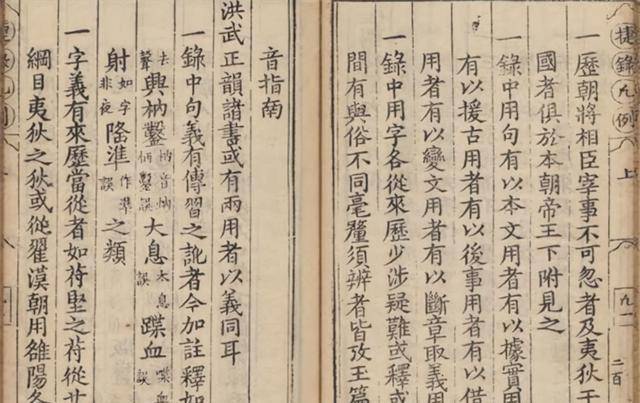 捷錄凡例 上 凡一
二百
一歷朝將相臣宰事不可忽者及夷狄干
國者俱於本朝帝王下附見之
一錄中用句有以本文用者有以據實用
有以援古用者有以後事用者有以借
用者有以變文用者有以斷章取義用
一錄中用字各從來歷少涉疑難或釋或
間有與俗不同毫釐須辨者皆攷玉篇
音指南
洪武正韻諸書或有兩用者以義同耳
一錄中句義有傳習之訛者今加註釋如
去聲興枘鑿枘音柄鑿誤大息太息誤蹀血喋血誤
射如字非夜隆準作準誤之類
一字義有來歷當從者如苻堅之苻從
綱目夷狄之狄或從翟漢朝用雒陽各